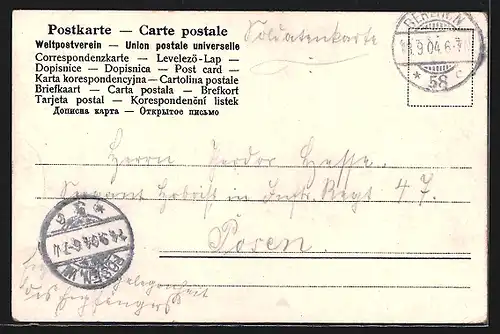 Postkarte — Carte postale
Weltpostverein — Union postale universelle
Correspondenzkarte — Levelező-Lap —
Dopisnice — Dopisnica — Post card —
Karta korespondencyjna — Cartolina postale
Briefkaart — Carta postala — Brefkort
Tarjeta postal — Korespondenční listek
Дописна карта — Открытое письмо
Soldatenkarte
BERLIN. N
9.04.6-7
* 58 c
Herrn
in Inftr. Regt 47.
Posen.
POSEN. W
9.04.6-7
Angelegenheit
des Empfängers